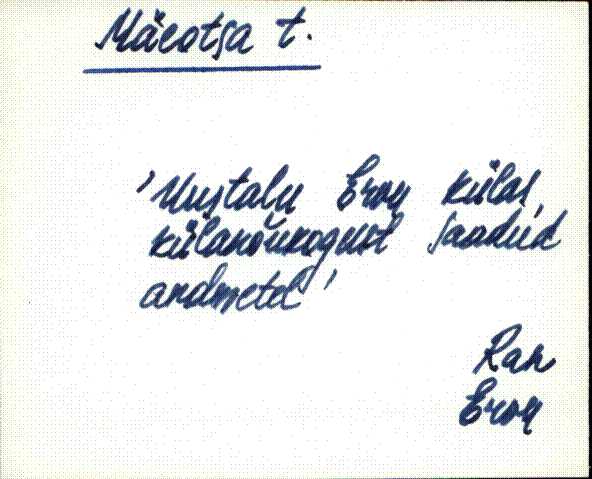 Mäeotsa t.
'Uustalu Ervu külas,
külanõukogust saadud
andmetel'
Ran
Ervu